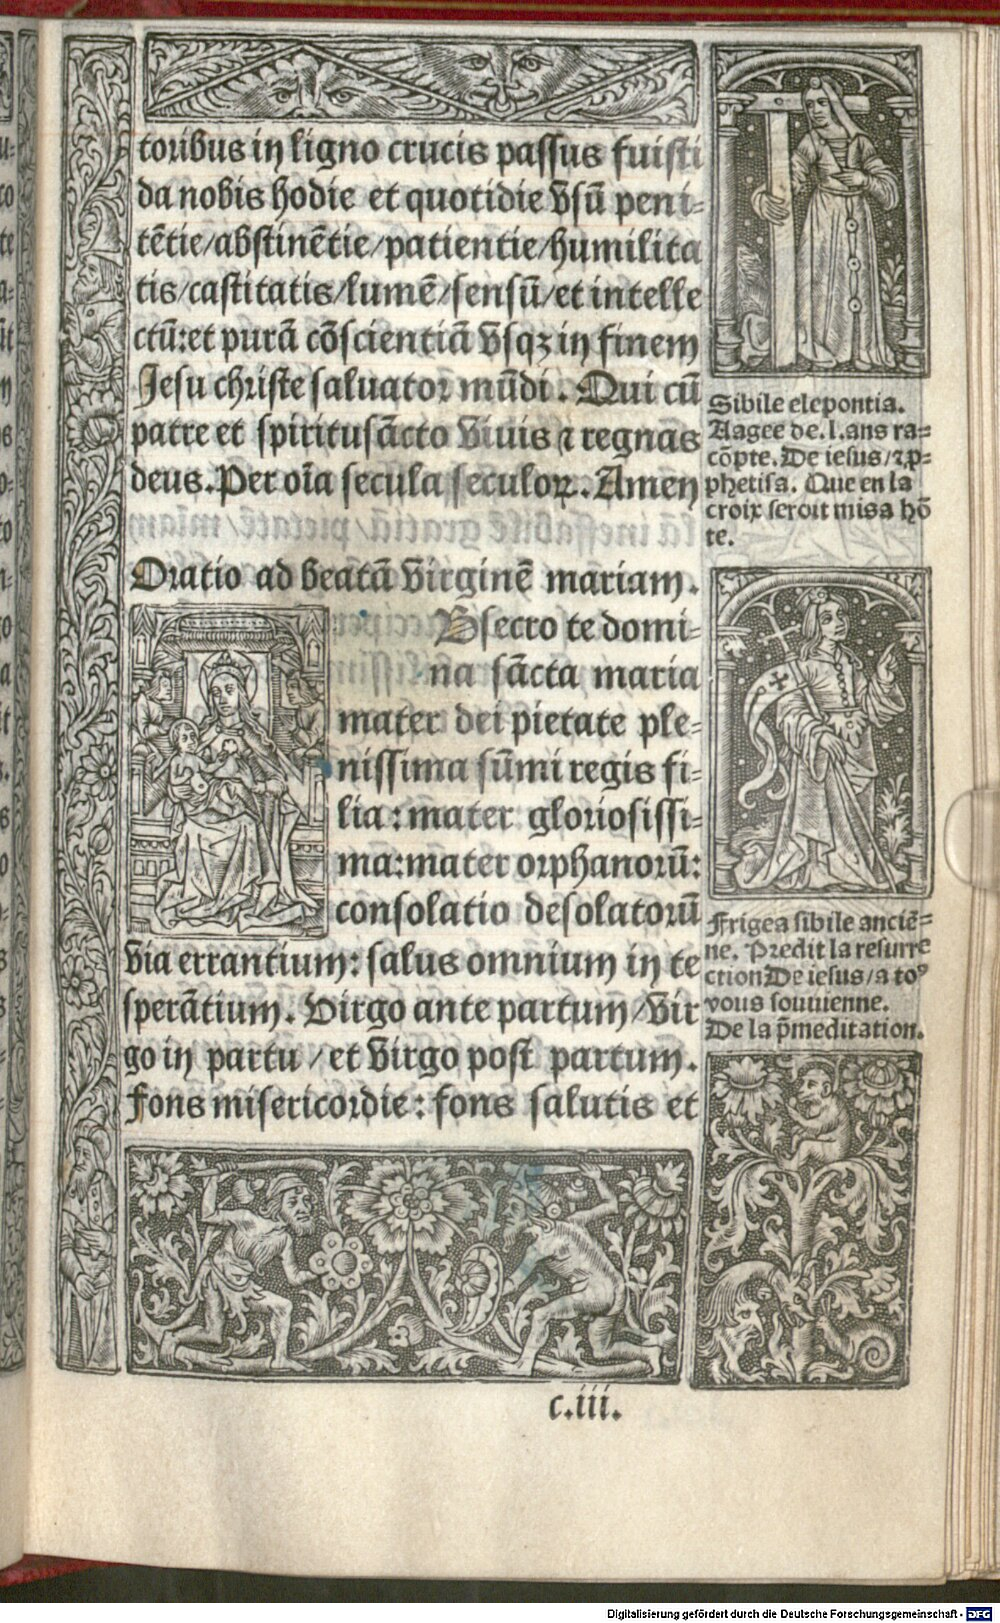 toribus in ligno crucis passus fuisti
da nobis hodie et quotidie vsū peni-
tētie/abstinētie/patientie/humilita
tis/castitatis/lumē/sensū/et intelle
ctū:et purā cōscientiā vsqꝫ in finem
Jesu christe saluator mūdi. Qui cū
patre et spiritusācto viuis ⁊ regnās
deus. Per oīa secula seculoꝝ. Amen
Oratio ad beatā virginē mariam.
Bsecro te domi-
na sācta maria
mater dei pietate ple-
nissima sūmi regis fi-
lia: mater gloriosissi-
ma: mater orphanorū:
consolatio desolatorū
via errantium: salus omnium in te
sperātium. Virgo ante partum/vir
go in partu/et virgo post partum.
fons misericordie: fons salutis et
Sibile elepontia.
Aagee de.l.ans ra-
cōpte. De iesus/⁊ p-
phetisa. Que en la
croix seroit misa hō
te.
Frigea sibile anciē-
ne. Predit la resurre
ction De iesus/a toꝰ
vous souuienne.
De la p̄meditation.
c.iii.
Digitalisierung gefördert durch die Deutsche Forschungsgemeinschaft - DFG